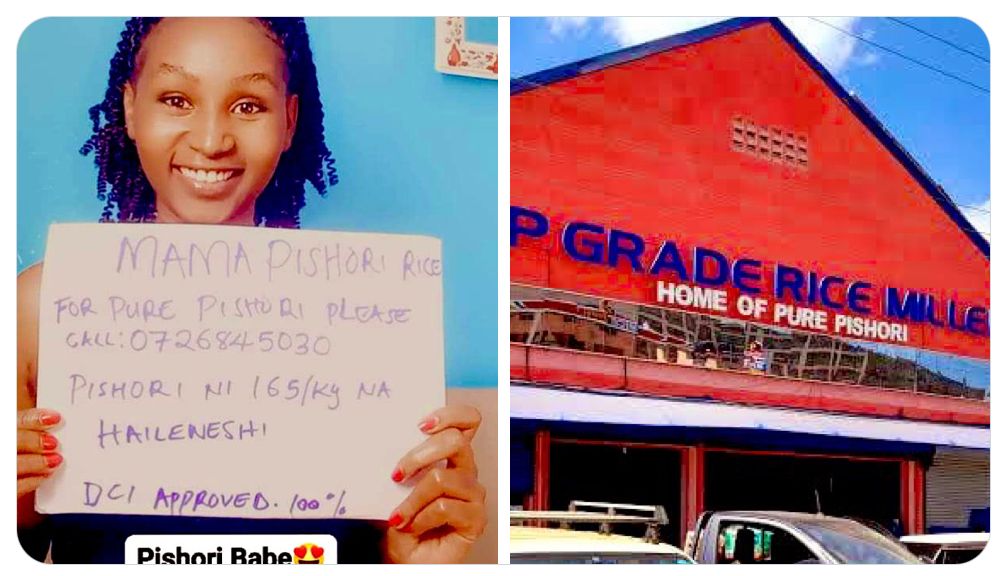 MAMA PISHORI RICE
FOR PURE PISHORI PLEASE
CALL: 0726845030
PISHORI NI 165/Kg NA
HAILENESHI
DCI APPROVED. 100%
Pishori Babe😍
P GRADE RICE MILLE
HOME OF PURE PISHORI